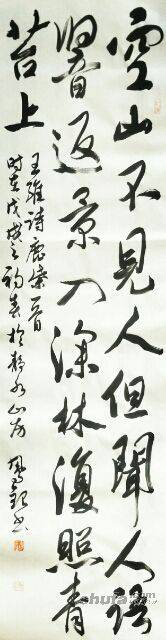 空山不見人但聞人語
響返景入深林復照青
苔上
王維詩鹿柴一首
時在戊戌之初春於靜水山房